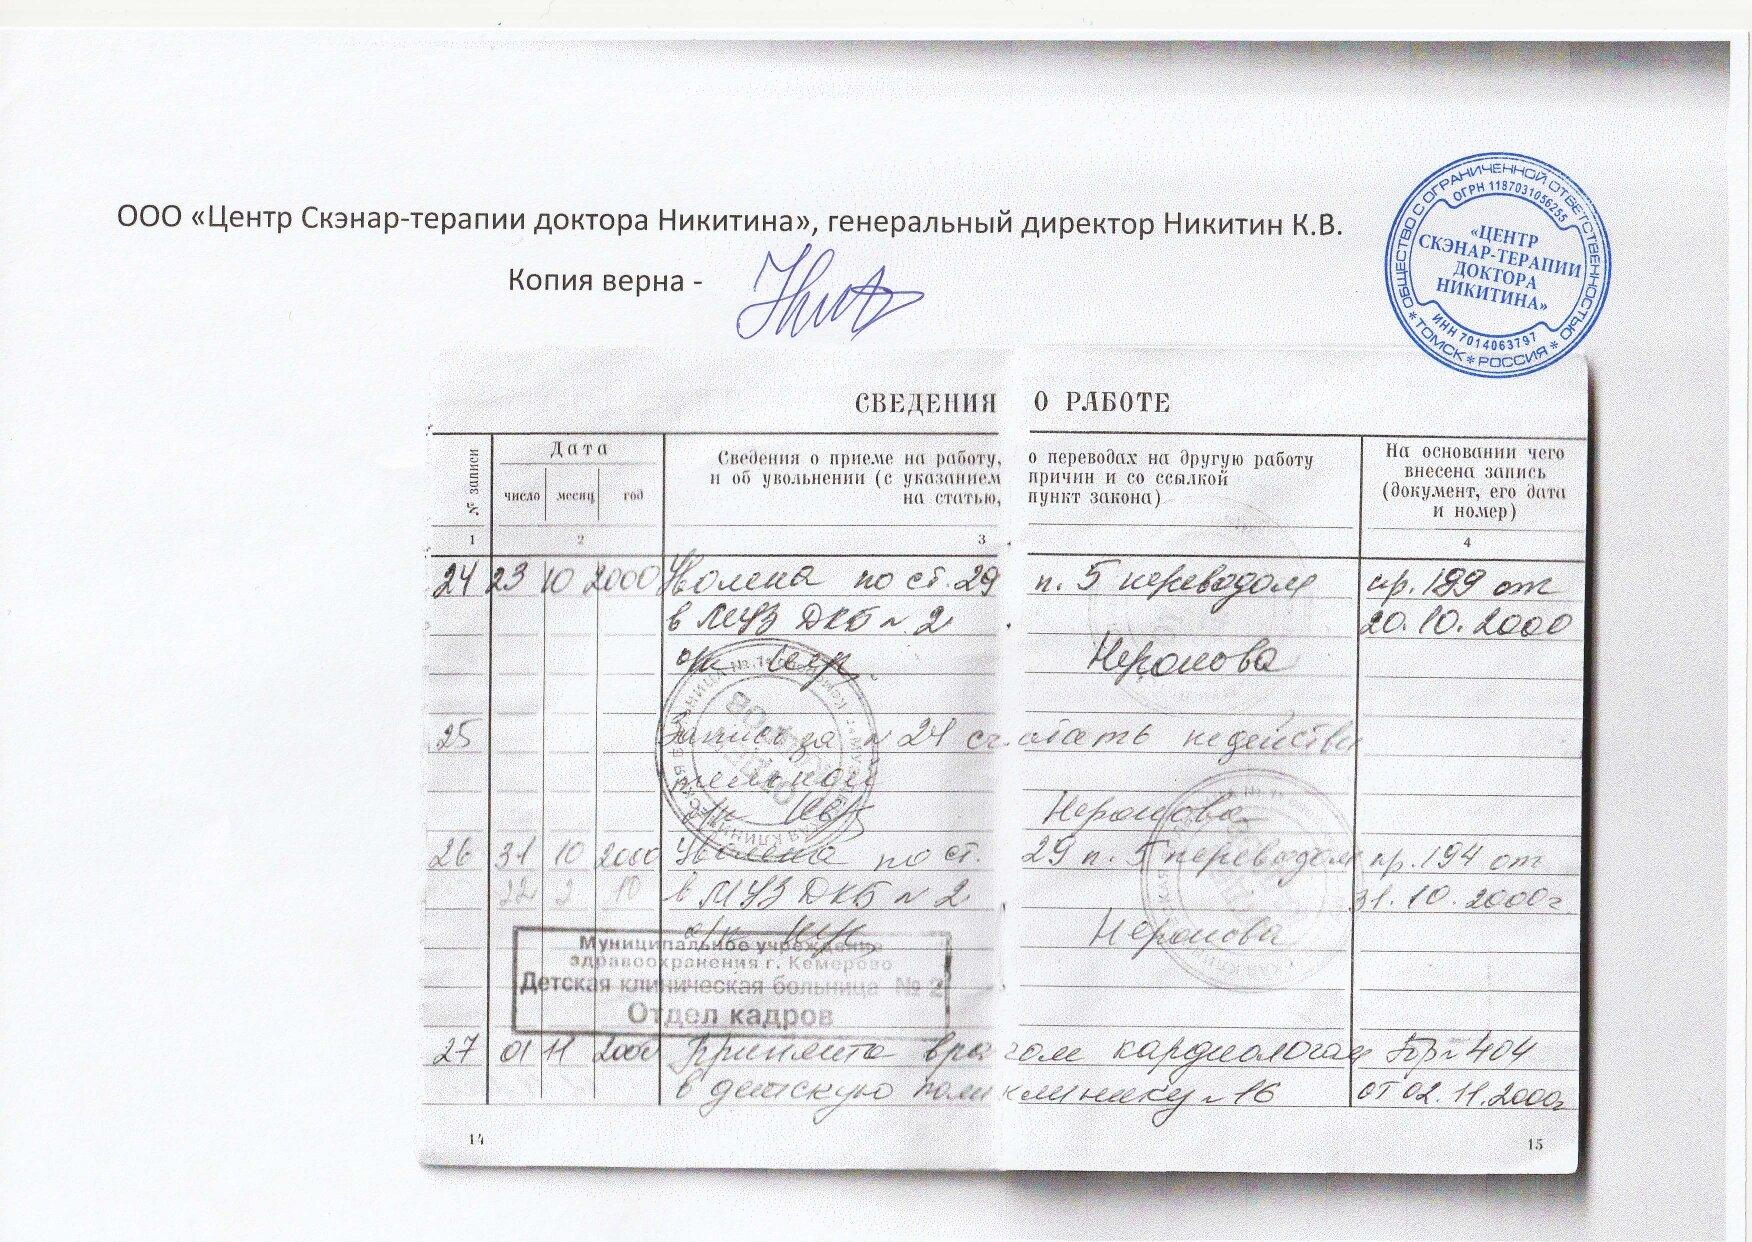 ООО «Центр Скэнар-терапии доктора Никитина», генеральный директор Никитин К.В.
Копия верна -
ОБЩЕСТВО С ОГРАНИЧЕННОЙ ОТВЕТСТВЕННОСТЬЮ
ОГРН 1187031056255
«ЦЕНТР
СКЭНАР-ТЕРАПИИ
ДОКТОРА
НИКИТИНА»
ИНН 7014063797
* ТОМСК * РОССИЯ *
СВЕДЕНИЯ О РАБОТЕ
№ записи
Дата
число месяц год
Сведения о приеме на работу, о переводах на другую работу
и об увольнении (с указанием причин и со ссылкой
на статью, пункт закона)
На основании чего
внесена запись
(документ, его дата
и номер)
1 2 3 4
24 23 10 2000 Уволена по ст. 29 п. 5 переводом пр. 199 от
в МУЗ ДКБ № 2 20.10.2000
о/к Неронова
25 Запись за № 24 считать недействи
тельной
Неронова
26 31 10 2000 Уволена по ст. 29 п. 5 переводом пр. 194 от
22 2 10 в МУЗ ДКБ № 2 31.10.2000г.
о/к Неронова
Муниципальное учреждение
здравоохранения г. Кемерово
Детская клиническая больница № 2
Отдел кадров
27 01 11 2000 Принята врачом кардиологом Пр № 404
в детскую поликлинику № 16 от 02.11.2000г
14 15